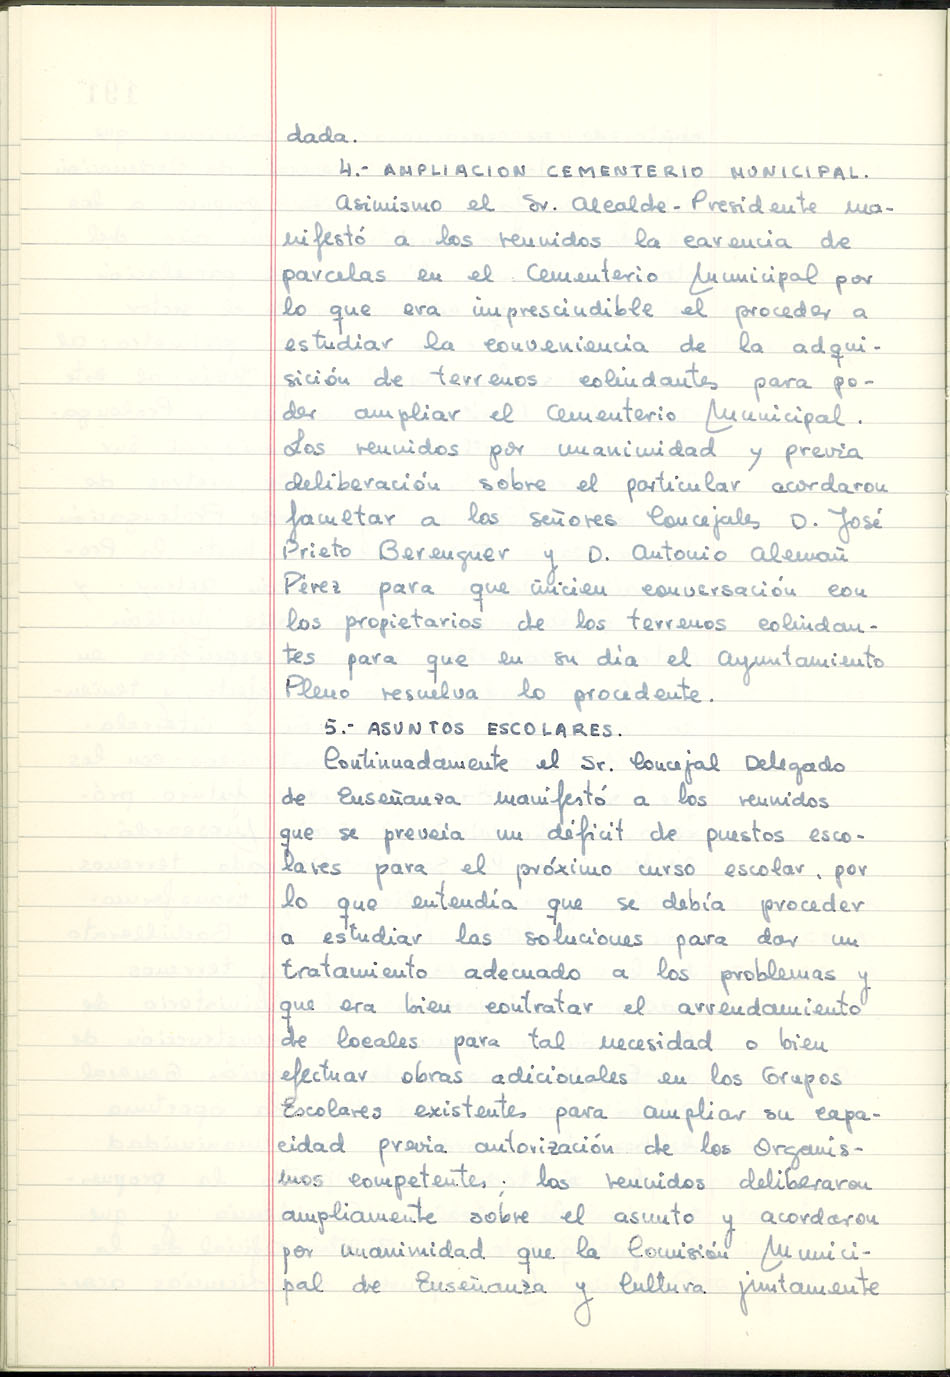 dada.
4.- AMPLIACION CEMENTERIO MUNICIPAL.
Asimismo el Sr. Alcalde-Presidente ma-
nifestó a los reunidos la carencia de
parcelas en el Cementerio Municipal por
lo que era imprescindible el proceder a
estudiar la conveniencia de la adqui-
sición de terrenos colindantes para po-
der ampliar el Cementerio Municipal.
Los reunidos por unanimidad y previa
deliberación sobre el particular acordaron
facultar a los señores Concejales D. José
Prieto Berenguer y D. Antonio Alemañ
Pérez para que inicien conversación con
los propietarios de los terrenos colindan-
tes para que en su día el Ayuntamiento
Pleno resuelva lo procedente.
5.- ASUNTOS ESCOLARES.
Continuadamente el Sr. Concejal Delegado
de Enseñanza manifestó a los reunidos
que se preveia un déficit de puestos esco-
lares para el próximo curso escolar, por
lo que entendía que se debía proceder
a estudiar las soluciones para dar un
tratamiento adecuado a los problemas y
que era bien contratar el arrendamiento
de locales para tal necesidad o bien
efectuar obras adicionales en los Grupos
Escolares existentes para ampliar su capa-
cidad previa autorización de los Organis-
mos competentes; los reunidos deliberaron
ampliamente sobre el asunto y acordaron
por unanimidad que la Comisión Munici-
pal de Enseñanza y Cultura juntamente